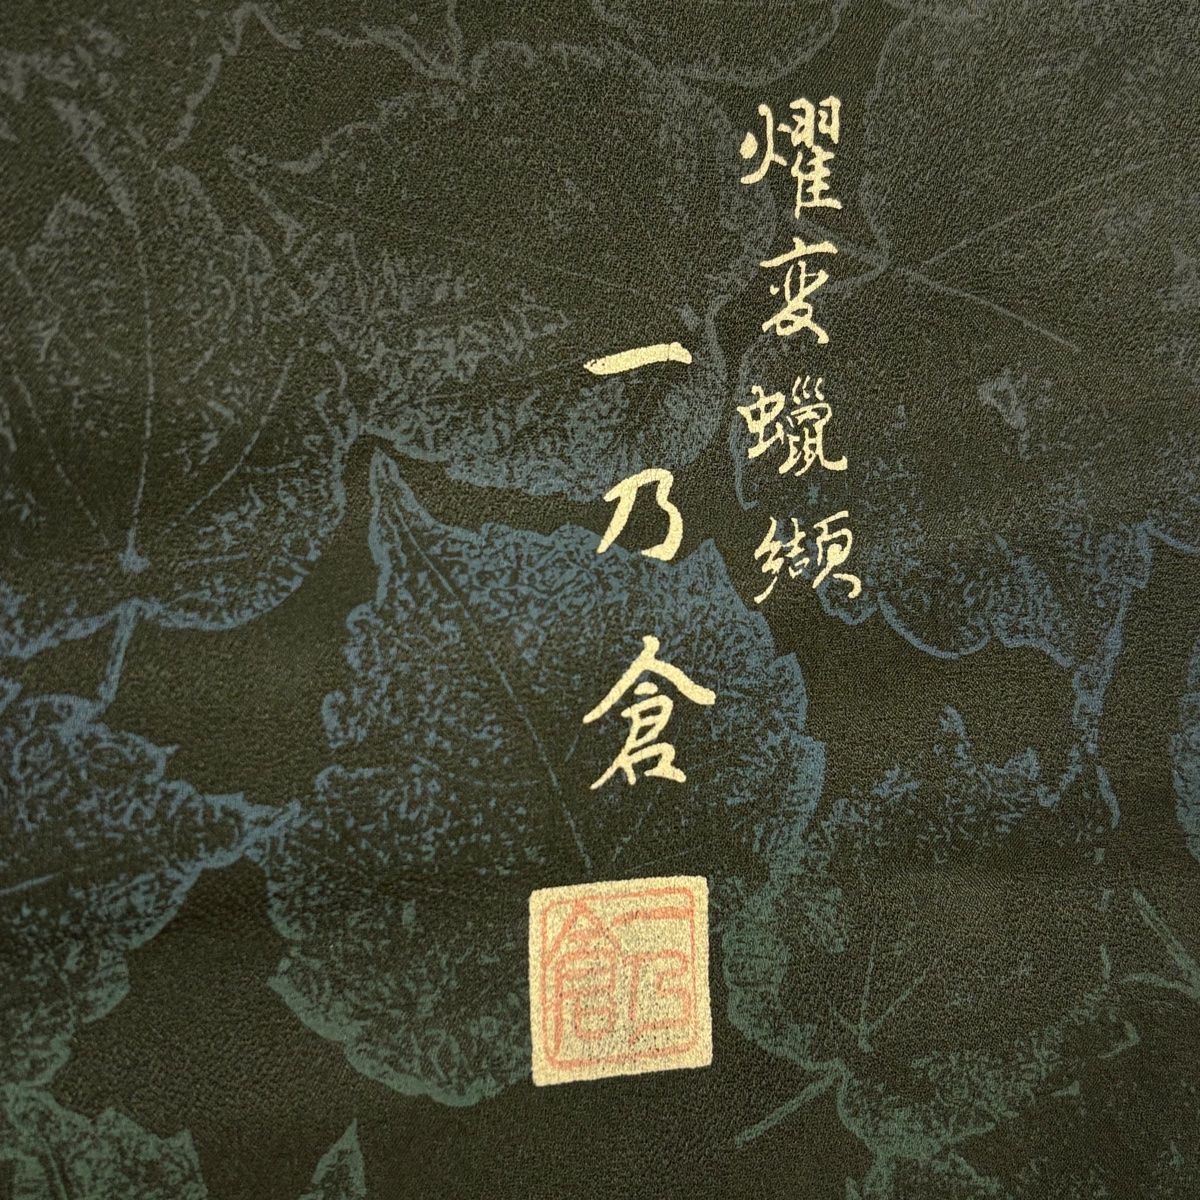 燿変蠟纈
一乃倉
一乃倉